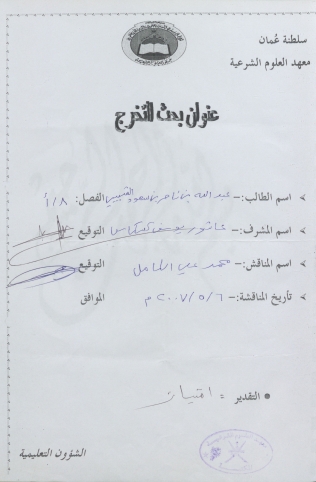 سلطنة عُمان
معهد العلوم الشرعية
عنوان بحث التخرج
اسم الطالب:- عبدالله بن ناصر بن سعود الفصل: ٨/أ
اسم المشرف:- عاشور يوسف كسكاس التوقيع
اسم المناقش:- محمد علي التوقيع
تأريخ المناقشة:- ٢٠٠٧/٥/٦م الموافق
التقدير = امتياز
الشؤون التعليمية